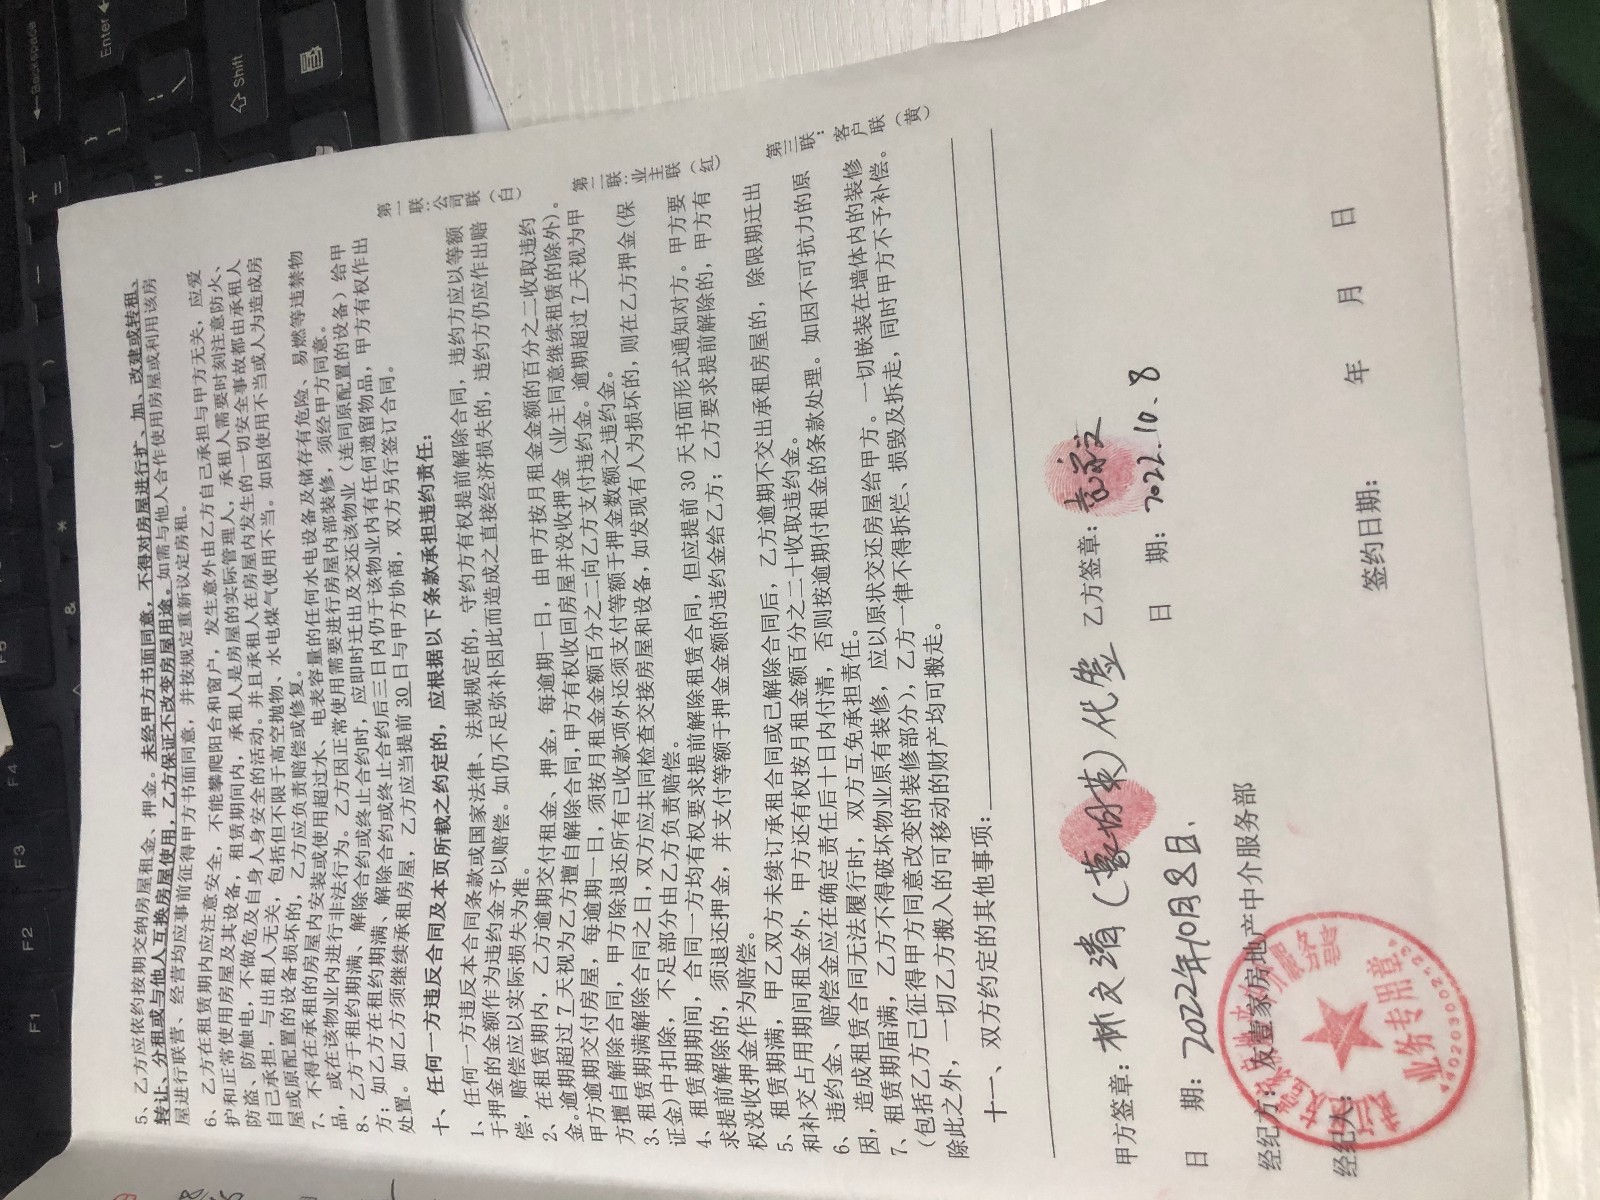 5、乙方应依约按期交纳房屋租金、押金。未经甲方书面同意，不得对房屋进行扩、加、改建或转租、
转让、分租或与他人互换房屋使用，乙方保证不改变房屋用途。如需与他人合作使用房屋或利用该房
屋进行联营、经营均应事前征得甲方书面同意，并按规定重新议定房租。
6、乙方在租赁期内应注意安全，不能攀爬阳台和窗户，发生意外由乙方自己承担与甲方无关，应爱
护和正常使用房屋及其设备，租赁期间内，承租人是房屋的实际管理人，承租人需要时刻注意防火、
防盗、防触电，不做危及自身人身安全的活动。并且承租人在房屋内发生的一切安全事故都由承租人
自己承担，与出租人无关，包括但不限于高空抛物、水电煤气使用不当。如因使用不当或人为造成房
屋或原配置的设备损坏的，乙方应负责赔偿或修复。
7、不得在承租的房屋内安装或使用超过水、电表容量的任何水电设备及储存有危险、易燃等违禁物
品，或在该物业内进行非法行为。乙方因正常使用需要进行房屋内部装修，须经甲方同意。
8、乙方于租约期满、解除合约或终止合约时，应即时迁出及交还该物业（连同原配置的设备）给甲
方；如乙方在租约期满、解除合约或终止合约后三日内仍于该物业内有任何遗留物品，甲方有权作出
处置。如乙方须继续承租房屋，乙方应当提前30日与甲方协商，双方另行签订合同。
十、任何一方违反合同及本页所载之约定的，应根据以下条款承担违约责任：
1、任何一方违反本合同条款或国家法律、法规规定的，守约方有权提前解除合同，违约方应以等额
于押金的金额作为违约金予以赔偿。如仍不足弥补因此而造成之直接经济损失的，违约方仍应作出赔
偿，赔偿应以实际损失为准。
2、在租赁期内，乙方逾期交付租金、押金，每逾期一日，由甲方按月租金金额的百分之二收取违约
金。逾期超过7天视为乙方擅自解除合同，甲方有权收回房屋并没收押金（业主同意继续租赁的除外）。
甲方逾期交付房屋，每逾期一日，须按月租金金额百分之二向乙方支付违约金。逾期超过7天视为甲
方擅自解除合同，甲方除退还所有已收款项外还须支付等额于押金数额之违约金。
3、租赁期满解除合同之日，双方应共同检查交接房屋和设备，如发现有人为损坏的，则在乙方押金(保
证金)中扣除，不足部分由乙方负责赔偿。
4、租赁期期间，合同一方均有权要求提前解除租赁合同，但应提前30天书面形式通知对方。甲方要
求提前解除的，须退还押金，并支付等额于押金金额的违约金给乙方；乙方要求提前解除的，甲方有
权没收押金作为赔偿。
5、租赁期满，甲乙双方未续订承租合同或已解除合同后，乙方逾期不交出承租房屋的，除限期迁出
和补交占用期间租金外，甲方还有权按月租金额百分之二十收取违约金。
6、违约金、赔偿金应在确定责任后十日内付清，否则按逾期付租金的条款处理。如因不可抗力的原
因，造成租赁合同无法履行时，双方互免承担责任。
7、租赁期届满，乙方不得破坏物业原有装修，应以原状交还房屋给甲方。一切嵌装在墙体内的装修
（包括乙方已征得甲方同意改变的装修部分），乙方一律不得拆烂、损毁及拆走，同时甲方不予补偿。
除此之外，一切乙方搬入的可移动的财产均可搬走。
十一、双方约定的其他事项：
第一联：公司联（白）
第二联：业主联（红）
第三联：客户联（黄）
甲方签章：林文清（ ）代签 乙方签章：
日 期：2022年10月8日. 日 期：2022.10.8
经纪方：友壹家房地产中介服务部
经纪人： 签约日期： 年 月 日
业务专用章
← Backspace
Enter
Shift
F1
F2
F3
F4